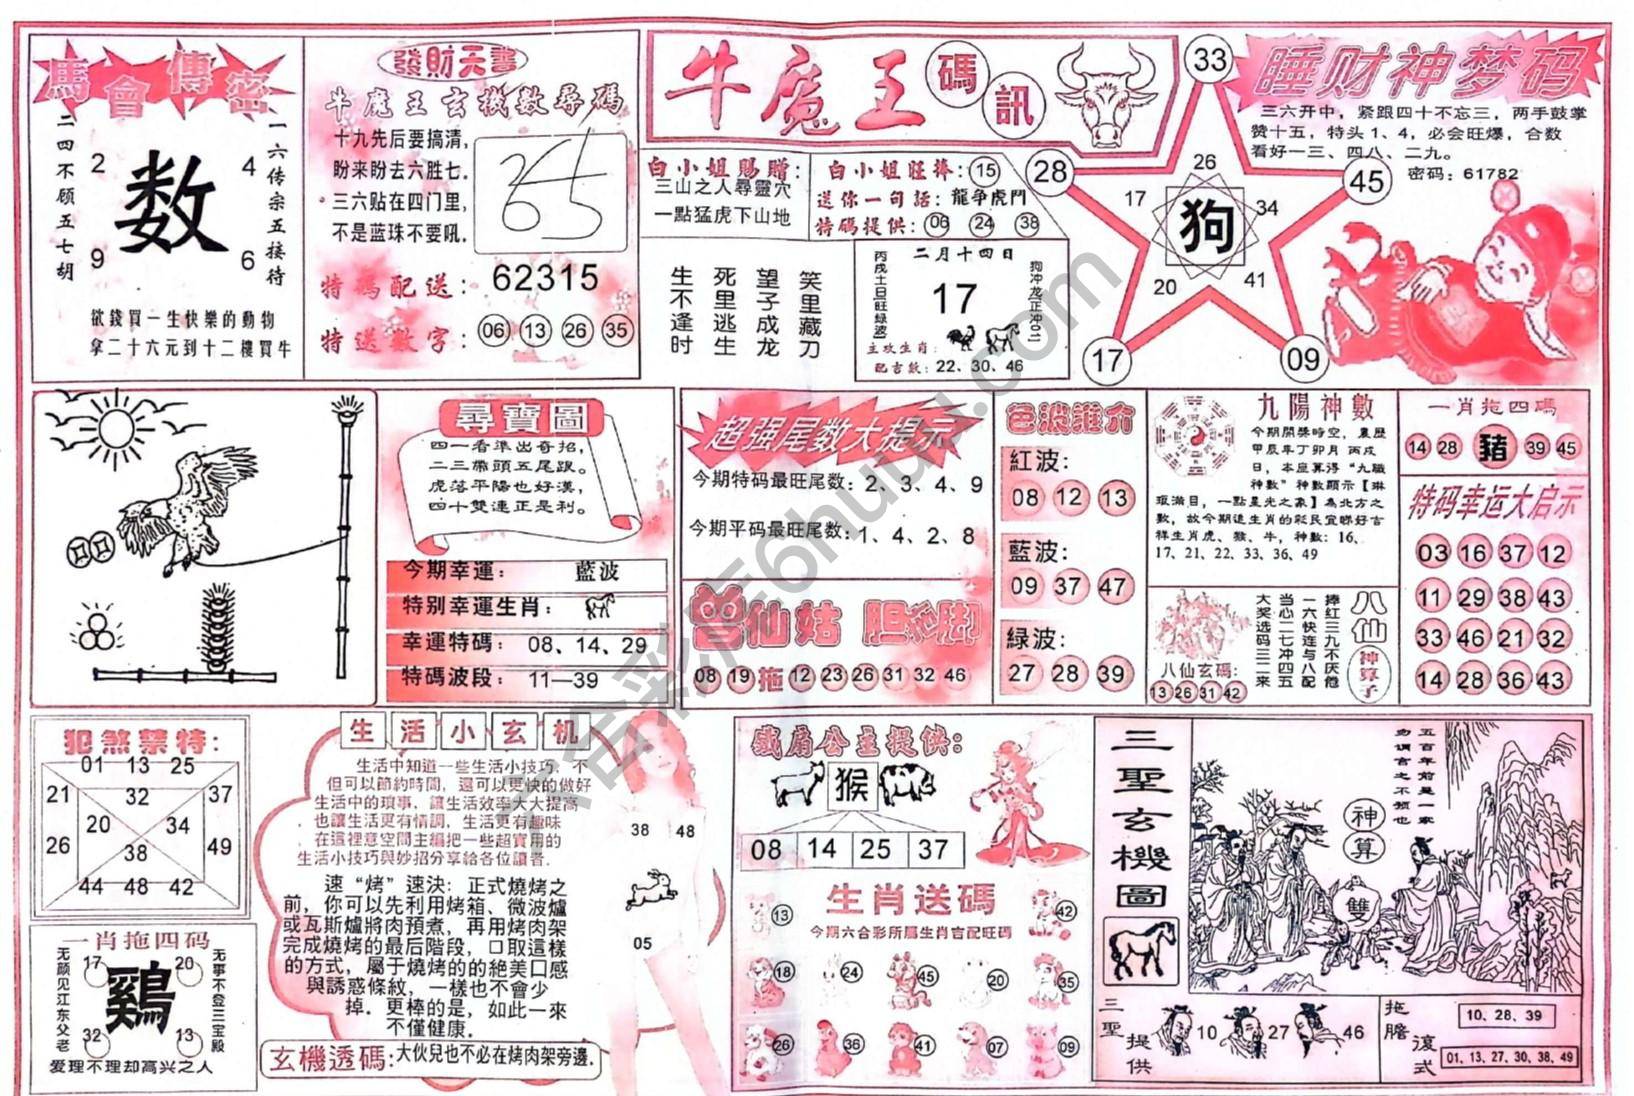 馬會傳密
一六传宗五接待
二四不顾五七胡
2 4
数
9 6
欲錢買一生快樂的動物
拿二十六元到十二樓買牛
發財天書
牛魔王玄機數尋碼
十九先后要搞清,
盼来盼去六胜七.
三六贴在四门里,
不是蓝珠不要吼.
特碼配送: 62315
特送數字: 06 13 26 35
牛魔王
碼訊
白小姐賜贈:
三山之人尋靈穴
一點猛虎下山地
白小姐旺捧: 15
送你一句話: 龍爭虎鬥
特碼提供: 06 24 38
笑里藏刀
望子成龙
死里逃生
生不逢时
二月十四日
17
主攻生肖:
配吉數: 22、30、46
33
28 45
26
17 34
狗
20 41
17 09
睡财神梦码
三六开中，紧跟四十不忘三，两手鼓掌
赞十五，特头1、4，必会旺爆，合数
看好一三、四八、二九。
密码: 61782
尋寶圖
四一看準出奇招,
二三帶頭五尾跟。
虎落平陽也好漢,
四十雙連正是利。
今期幸運: 藍波
特别幸運生肖:
幸運特碼: 08、14、29
特碼波段: 11—39
超强尾数大提示
今期特码最旺尾数: 2、3、4、9
今期平码最旺尾数: 1、4、2、8
仙姑
08 19 拖 12 23 26 31 32 46
色波推介
紅波:
08 12 13
藍波:
09 37 47
緑波:
27 28 39
九陽神數
今期開獎時空，農歷
甲辰年丁卯月 丙戌
日，本座算得“九職
神數”神數顯示【琳
琅滿目，一點星光之象】為北方之
數，故今期追生肖的彩民宜睇好吉
祥生肖虎、猴、牛，神數: 16、
17、21、22、33、36、49
八仙
神算子
捧红三九不厌倦
一六快连与八配
当心二七冲四五
大奖选码三二来
八仙玄碼:
13 26 31 42
一肖拖四碼
14 28 豬 39 45
特码幸运大启示
03 16 37 12
11 29 38 43
33 46 21 32
14 28 36 43
犯煞禁特:
01 13 25
21 32 37
20 34
26 38 49
44 48 42
一肖拖四码
无事不登三宝殿
无颜见江东父老
17 20
鷄
32 13
爱理不理却高兴之人
生活小玄机
生活中知道一些生活小技巧，不
但可以節約時間，還可以更快的做好
生活中的瑣事，讓生活效率大大提高
，也讓生活更有情調，生活更有趣味
．在這裡意空間主編把一些超實用的
生活小技巧與妙招分享給各位讀者．
速“烤”速決: 正式燒烤之
前，你可以先利用烤箱、微波爐
或瓦斯爐將肉預煮，再用烤肉架
完成燒烤的最后階段，口取這樣
的方式，屬于燒烤的的絶美口感
與誘惑條紋，一樣也不會少
掉．更棒的是，如此一來
不僅健康．
玄機透碼: 大伙兒也不必在烤肉架旁邊．
38 48
05
鐵扇公主提供:
猴
08 14 25 37
生肖送碼
今期六合彩所屬生肖吉配旺碼
13 42
18 24 45 20 35
26 36 41 07 09
三聖玄機圖
五百年前是一家
勿谓言之不预也
神算
雙
三聖提供
10 27 46
拖膽
10、28、39
滚式
01、13、27、30、38、49
六合彩库6huu.com